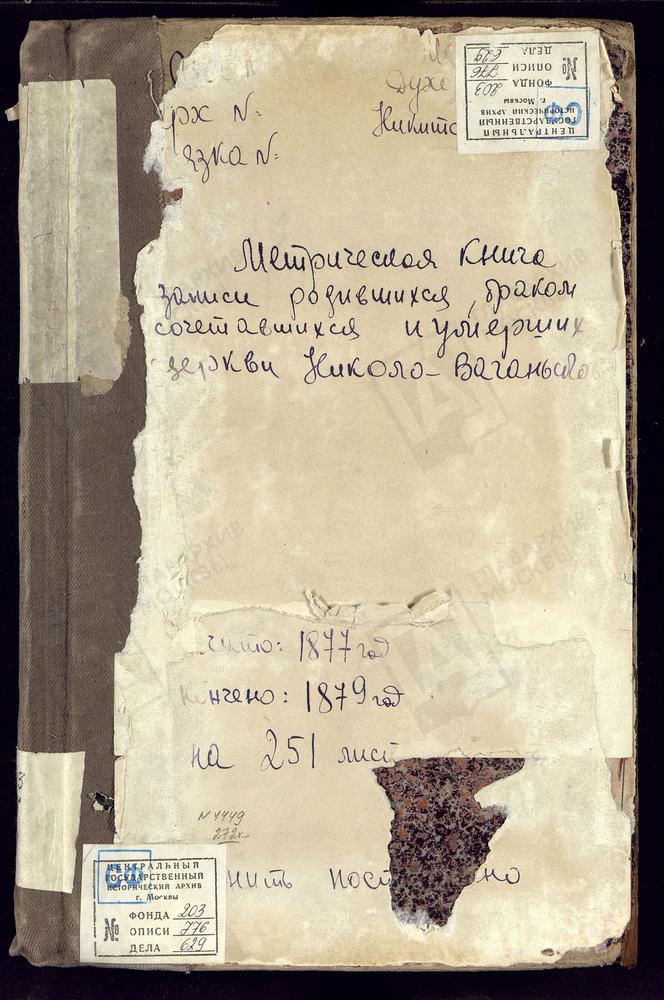 Духо
Никитс
рх №:
язка №:
ЦЕНТРАЛЬНЫЙ
ГОСУДАРСТВЕННЫЙ
ИСТОРИЧЕСКИЙ АРХИВ
г. Москвы
СФ
№
ФОНДА 203
ОПИСИ 776
ДЕЛА 629
Метрическая книга
записи родившихся, браком
сочетавшихся и умерших
церкви Николо-Ваганьково
чато: 1877 год
кончено: 1879 год
на 251 лист
N 4449
272л
нить пост но
ЦЕНТРАЛЬНЫЙ
ГОСУДАРСТВЕННЫЙ
ИСТОРИЧЕСКИЙ АРХИВ
г. Москвы
СФ
№
ФОНДА 203
ОПИСИ 776
ДЕЛА 629
ГЛАВАРХИВ
МОСКВЫ